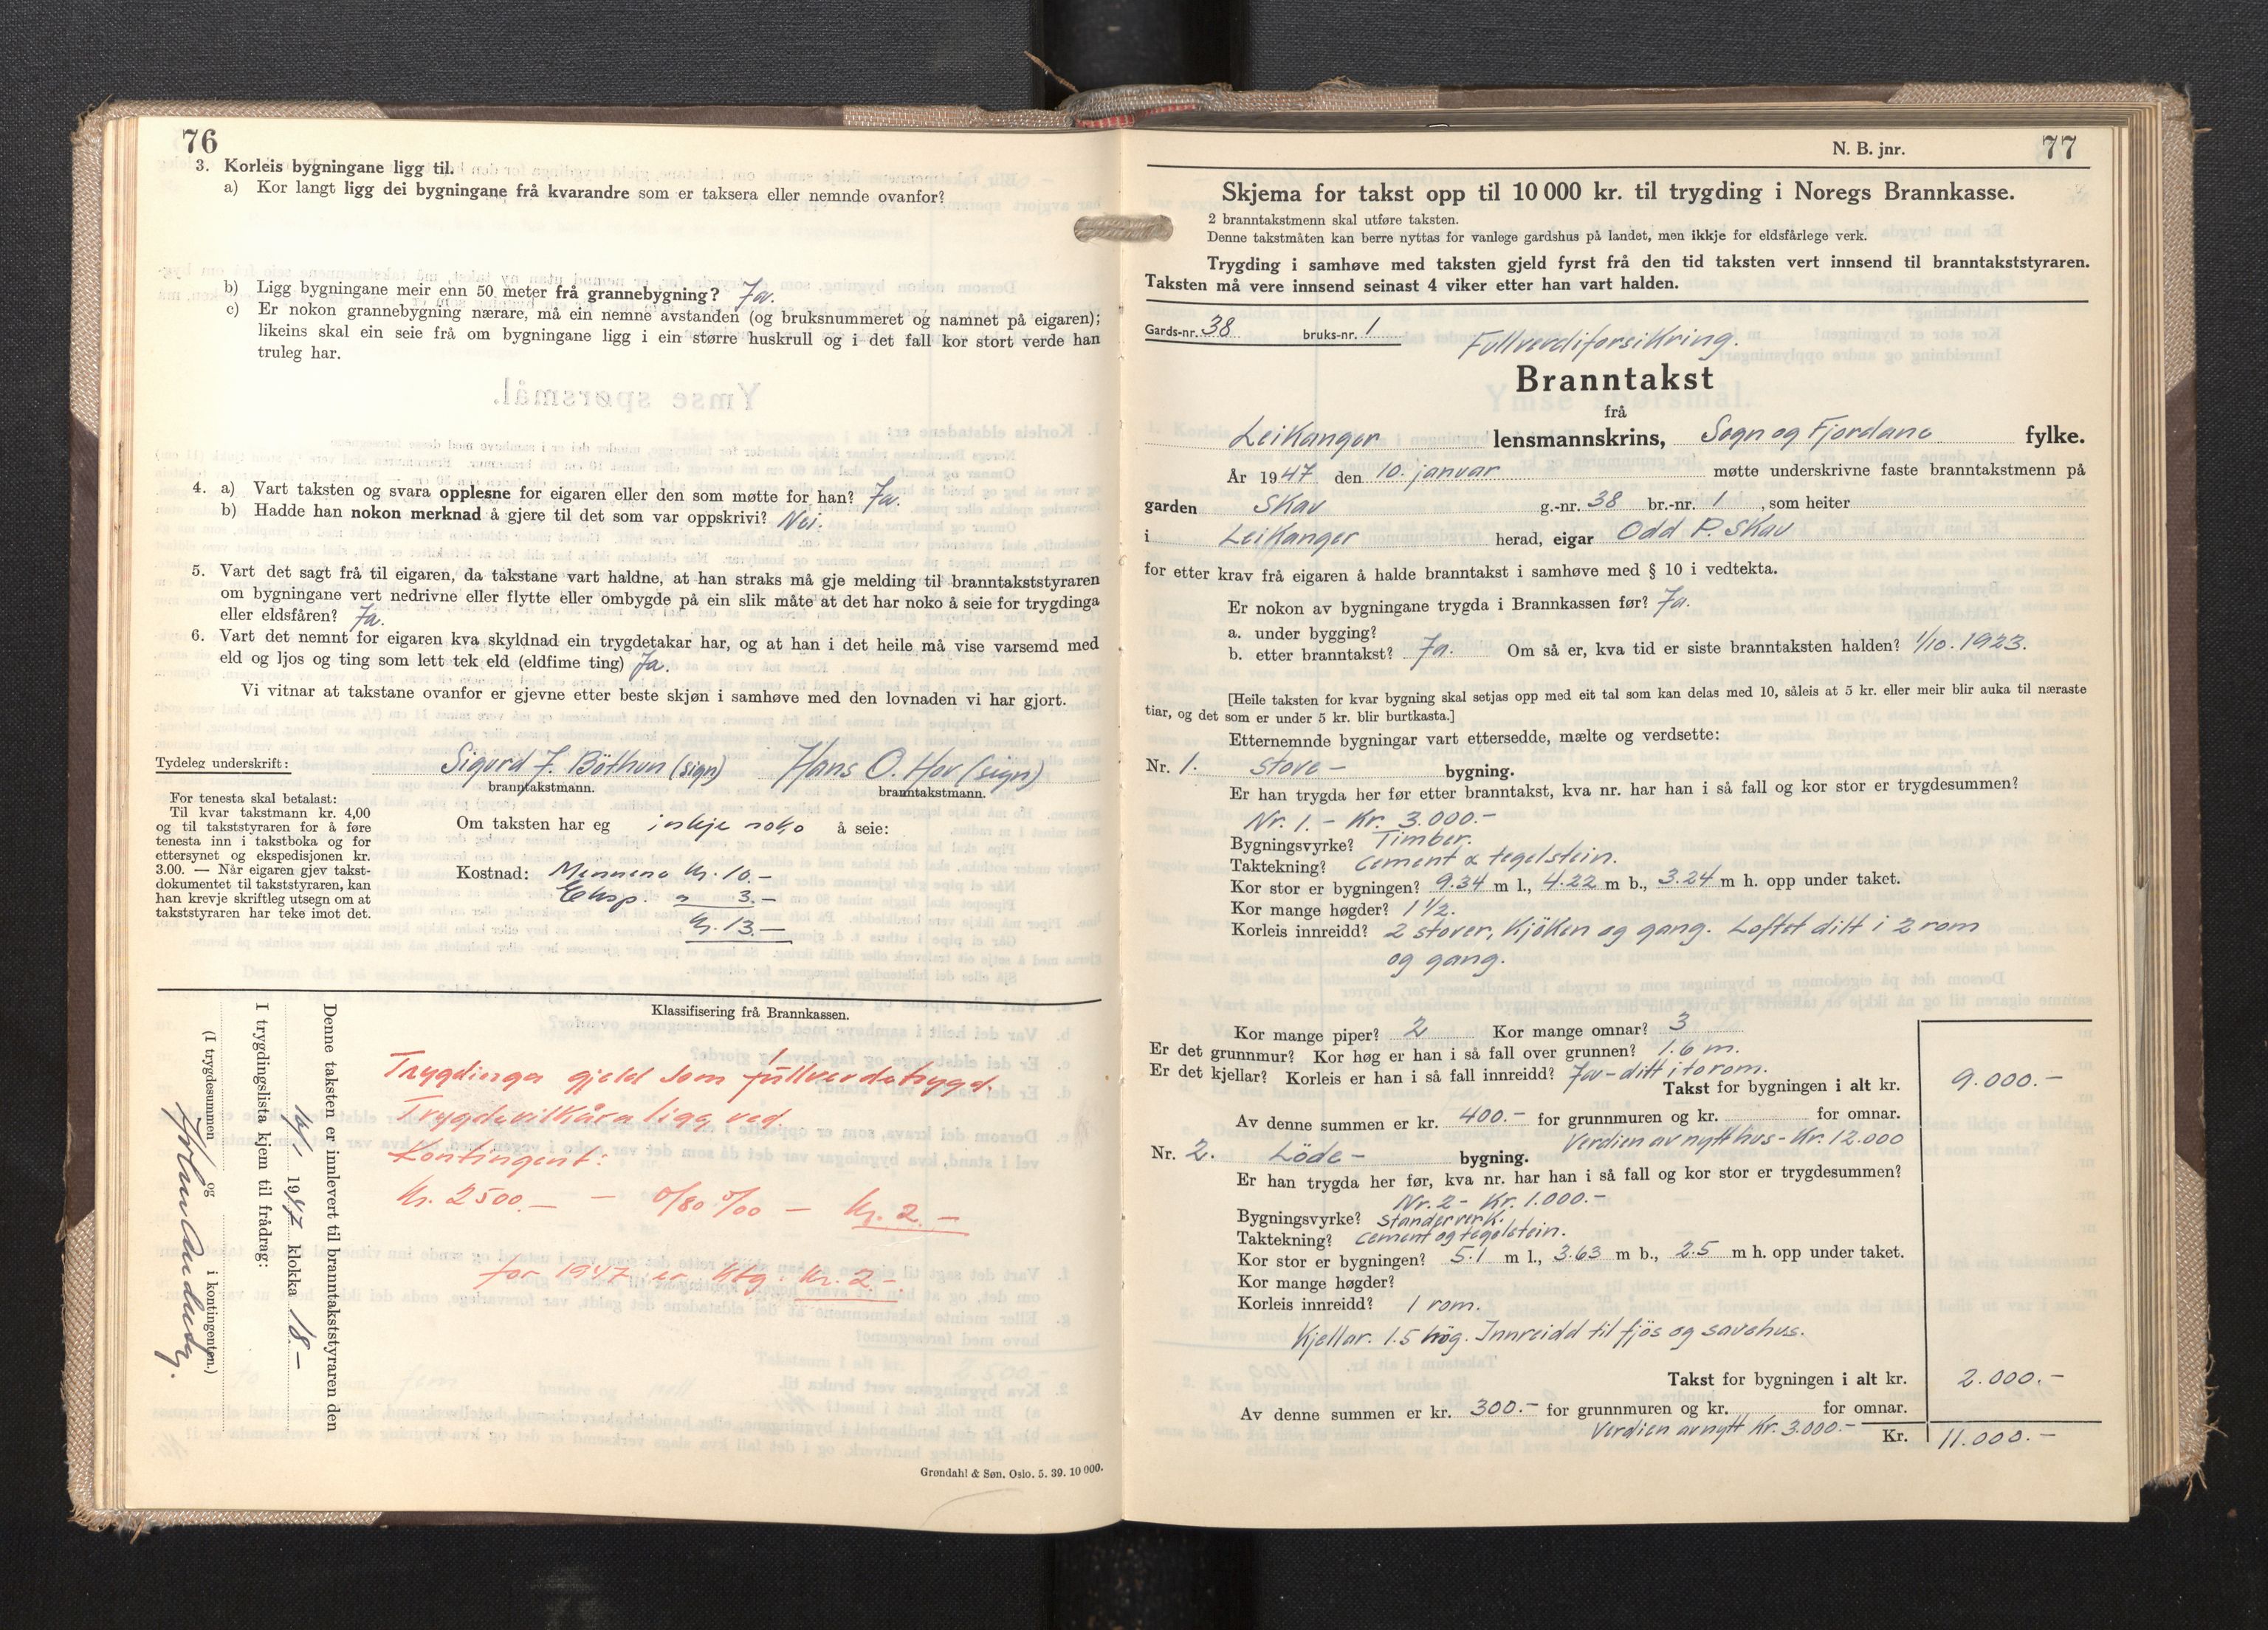 76
3. Korleis bygningane ligg til.
a) Kor langt ligg dei bygningane frå kvarandre som er taksera eller nemnde ovanfor?
b) Ligg bygningane meir enn 50 meter frå grannebygning? Ja.
c) Er nokon grannebygning nærare, må ein nemne avstanden (og bruksnummeret og namnet på eigaren);
likeins skal ein seie frå om bygningane ligg i ein større huskrull og i det fall kor stort verde han
truleg har.
4. a) Vart taksten og svara opplesne for eigaren eller den som møtte for han? Ja.
b) Hadde han nokon merknad å gjere til det som var oppskrivi? Nei.
5. Vart det sagt frå til eigaren, da takstane vart haldne, at han straks må gje melding til branntakststyraren
om bygningane vert nedrivne eller flytte eller ombygde på ein slik måte at det har noko å seie for trygdinga
eller eldsfåren? Ja.
6. Vart det nemnt for eigaren kva skyldnad ein trygdetakar har, og at han i det heile må vise varsemd med
eld og ljos og ting som lett tek eld (eldfime ting) Ja.
Vi vitnar at takstane ovanfor er gjevne etter beste skjøn i samhøve med den lovnaden vi har gjort.
Tydeleg underskrift: Sigurd J. Böthun (sign) Hans O. Hov (sign)
branntakstmann. branntakstmann.
For tenesta skal betalast:
Til kvar takstmann kr. 4,00
og til takststyraren for å føre
tenesta inn i takstboka og for
ettersynet og ekspedisjonen kr.
3.00. — Når eigaren gjev takst-
dokumentet til takststyraren, kan
han krevje skriftleg utsegn om at
takststyraren har teke imot det.
Om taksten har eg innkje noko å seie:
Kostnad: Mennene kr. 10.-
Eksp. " 3.-
kr. 13.-
Klassifisering frå Brannkassen.
Trygdinga gjeld som fullverdetrygd.
Trygdevilkåra ligg ved.
Kontingent:
kr. 2500.- - 0/80 0/00 - kr. 2.-
for 1947 er ktg. kr. 2.-
Denne taksten er innlevert til branntakststyraren den
19 47 klokka 18.-
I trygdingslista kjem til frådrag:
(I trygdesummen og i kontingenten.)
Grøndahl & Søn. Oslo. 5. 39. 10 000.
N. B. jnr. 77
Skjema for takst opp til 10 000 kr. til trygding i Noregs Brannkasse.
2 branntakstmenn skal utføre taksten.
Denne takstmåten kan berre nyttas for vanlege gardshus på landet, men ikkje for eldsfårlege verk.
Trygding i samhøve med taksten gjeld fyrst frå den tid taksten vert innsend til branntakststyraren.
Taksten må vere innsend seinast 4 viker etter han vart halden.
Gards-nr. 38 bruks-nr. 1
Fullverdiforsikring.
Branntakst
frå
Leikanger lensmannskrins, Sogn og Fjordane fylke.
År 1947 den 10. januar møtte underskrivne faste branntakstmenn på
garden Skav g.-nr. 38 br.-nr. 1, som heiter
i Leikanger herad, eigar Odd P. Skav
for etter krav frå eigaren å halde branntakst i samhøve med § 10 i vedtekta.
Er nokon av bygningane trygda i Brannkassen før? Ja.
a. under bygging?
b. etter branntakst? Ja. Om så er, kva tid er siste branntaksten halden? 1/10. 1923.
[Heile taksten for kvar bygning skal setjas opp med eit tal som kan delas med 10, såleis at 5 kr. eller meir blir auka til næraste
tiar, og det som er under 5 kr. blir burtkasta.]
Etternemnde bygningar vart ettersedde, mælte og verdsette:
Nr. 1. Stove - bygning.
Er han trygda her før etter branntakst, kva nr. har han i så fall og kor stor er trygdesummen?
Nr. 1. - Kr. 3.000.-
Bygningsvyrke? Timber.
Taktekning? Cement & tegelstein.
Kor stor er bygningen? 9.34 m l., 4.22 m b., 3.24 m h. opp under taket.
Kor mange høgder? 1 1/2.
Korleis innreidd? 2 stover, Kjöken og gang. Loftet ditt i 2 rom
og gang.
Kor mange piper? 2 Kor mange omnar? 3
Er det grunnmur? Kor høg er han i så fall over grunnen? 1.6 m.
Er det kjellar? Korleis er han i så fall innreidd? Ja - ditt i to rom.
Takst for bygningen i alt kr. 9.000.-
Av denne summen er kr. 400.- for grunnmuren og kr. for omnar.
Verdien av nytt hus - Kr. 12.000
Nr. 2. Löde - bygning.
Er han trygda her før, kva nr. har han i så fall og kor stor er trygdesummen?
Nr. 2 - Kr. 1.000.-
Bygningsvyrke? Standerverk.
Taktekning? Cement og tegelstein.
Kor stor er bygningen? 5.1 m l., 3.63 m b., 2.5 m h. opp under taket.
Kor mange høgder?
Korleis innreidd? 1 rom.
Kjellar. 1.5 høg. Innreidd til fjös og savehus.
Takst for bygningen i alt kr. 2.000.-
Av denne summen er kr. 300.- for grunnmuren og kr. for omnar.
Verdien av nytt Kr. 3.000.-
Kr. 11.000.-